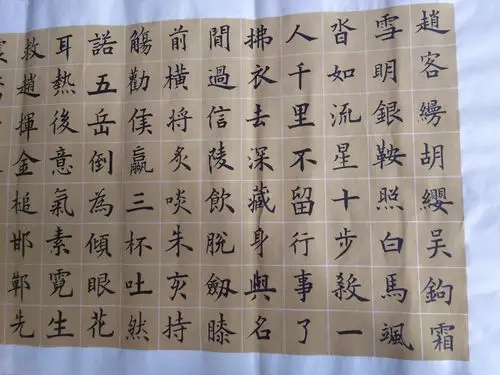 趙客縵胡纓吳鉤霜
雪明銀鞍照白馬颯
沓如流星十步殺一
人千里不留行事了
拂衣去深藏身與名
間過信陵飲脫劔膝
前橫將炙啖朱亥持
觴勸侯嬴三杯吐然
諾五岳倒為傾眼花
耳熱後意氣素霓生
救趙揮金槌邯鄲先